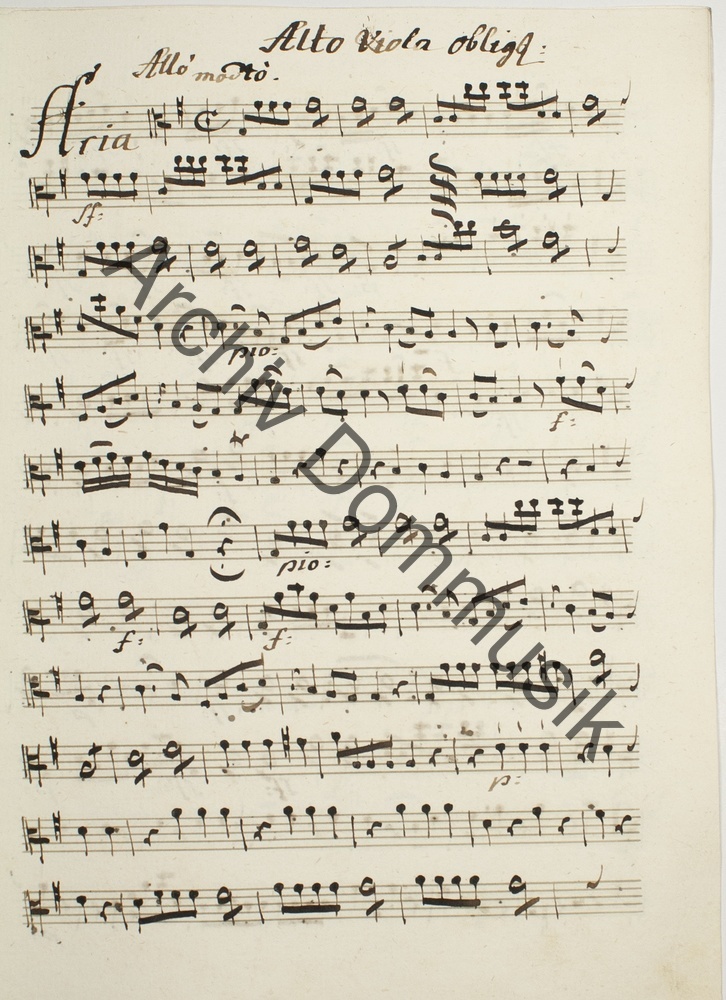 Alto Viola obligą:
Allo' modto.
Aria
sf:
pio:
f:
pio:
f: f:
p:
Archiv Dommusik